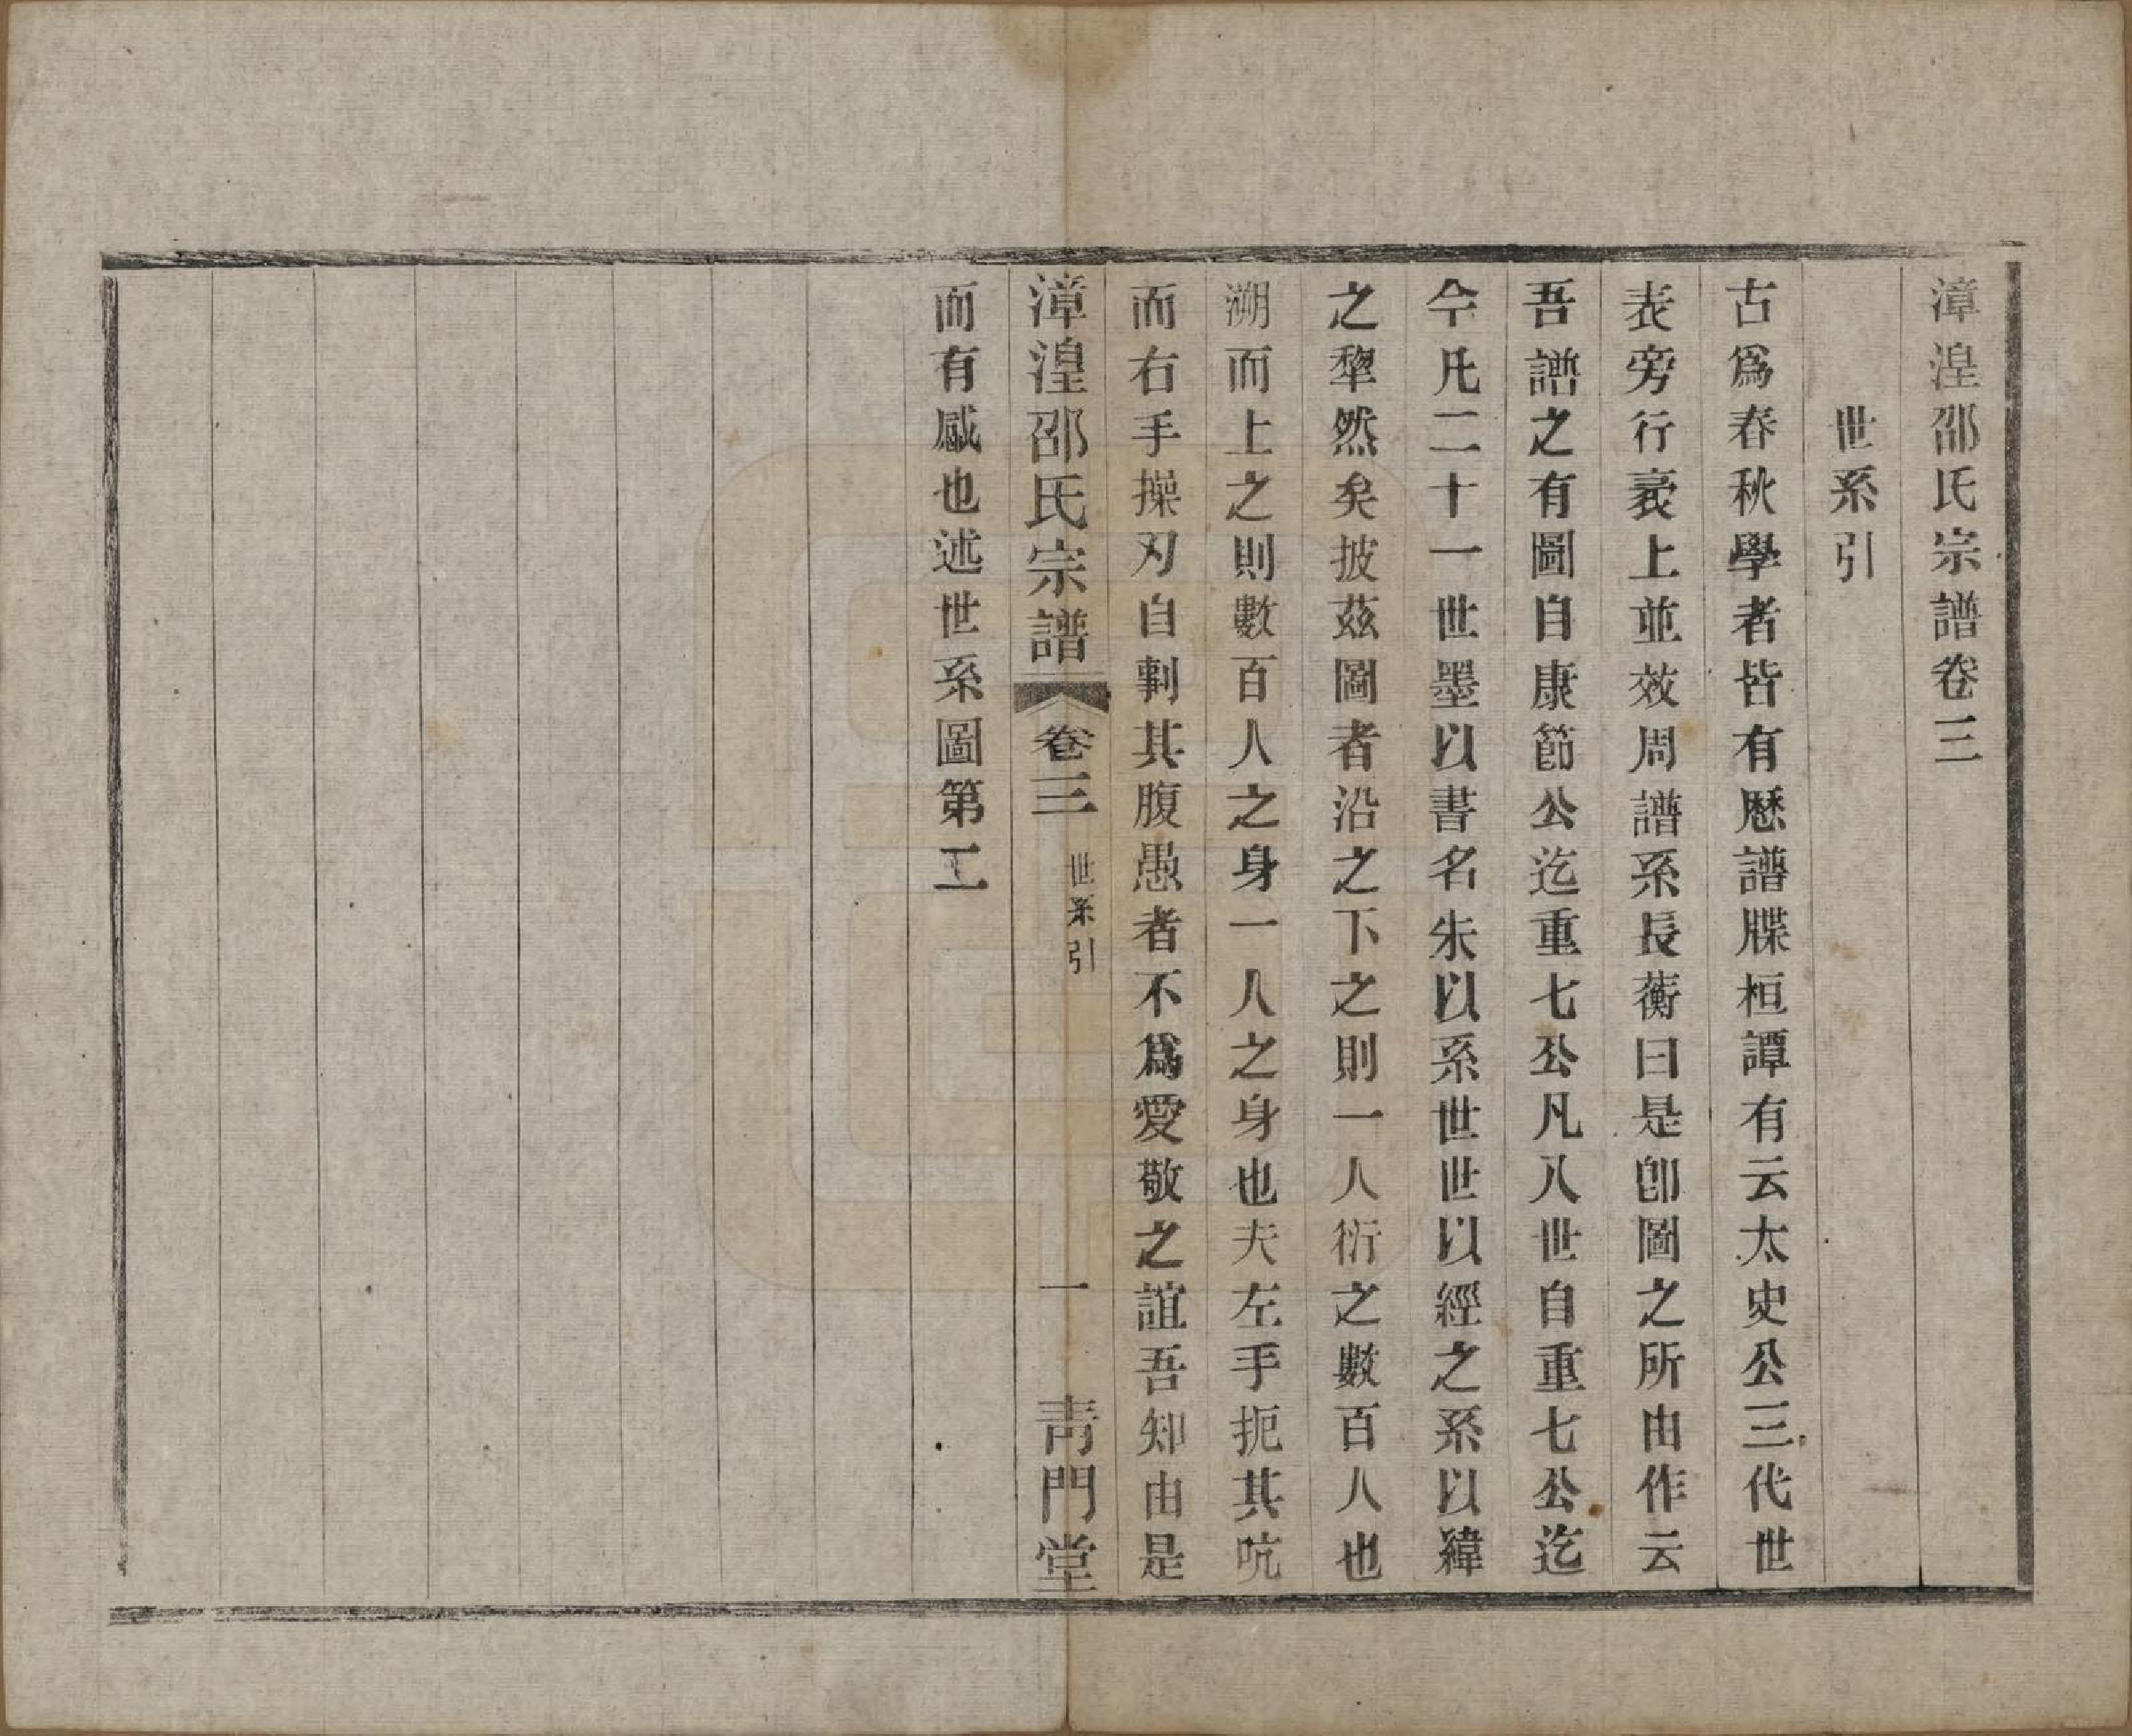 漳湟邵氏宗譜卷三
世系引
古爲春秋學者皆有厯譜牒桓譚有云太史公三代世
表旁行衺上並效周譜系長蘅曰是卽圖之所由作云
吾譜之有圖自康節公迄重七公凡八世自重七公迄
今凡二十一世墨以書名朱以系世世以經之系以緯
之犂然矣披茲圖者沿之下之則一人衍之數百人也
溯而上之則數百人之身一人之身也夫左手扼其吭
而右手操刃自剚其腹愚者不爲愛敬之誼吾知由是
漳湟邵氏宗譜
卷三
世系引
一
青門堂
而有感也述世系圖第二